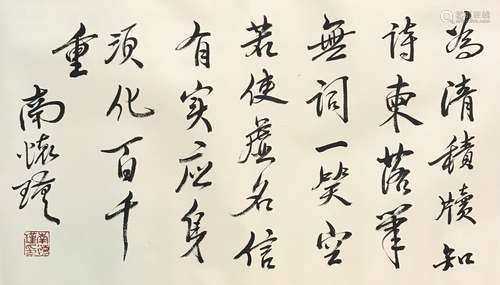 為清積牘知
詩柬落筆
無詞一笑空
若使虛名信
有実应身
須化百千
重
南懷瑾